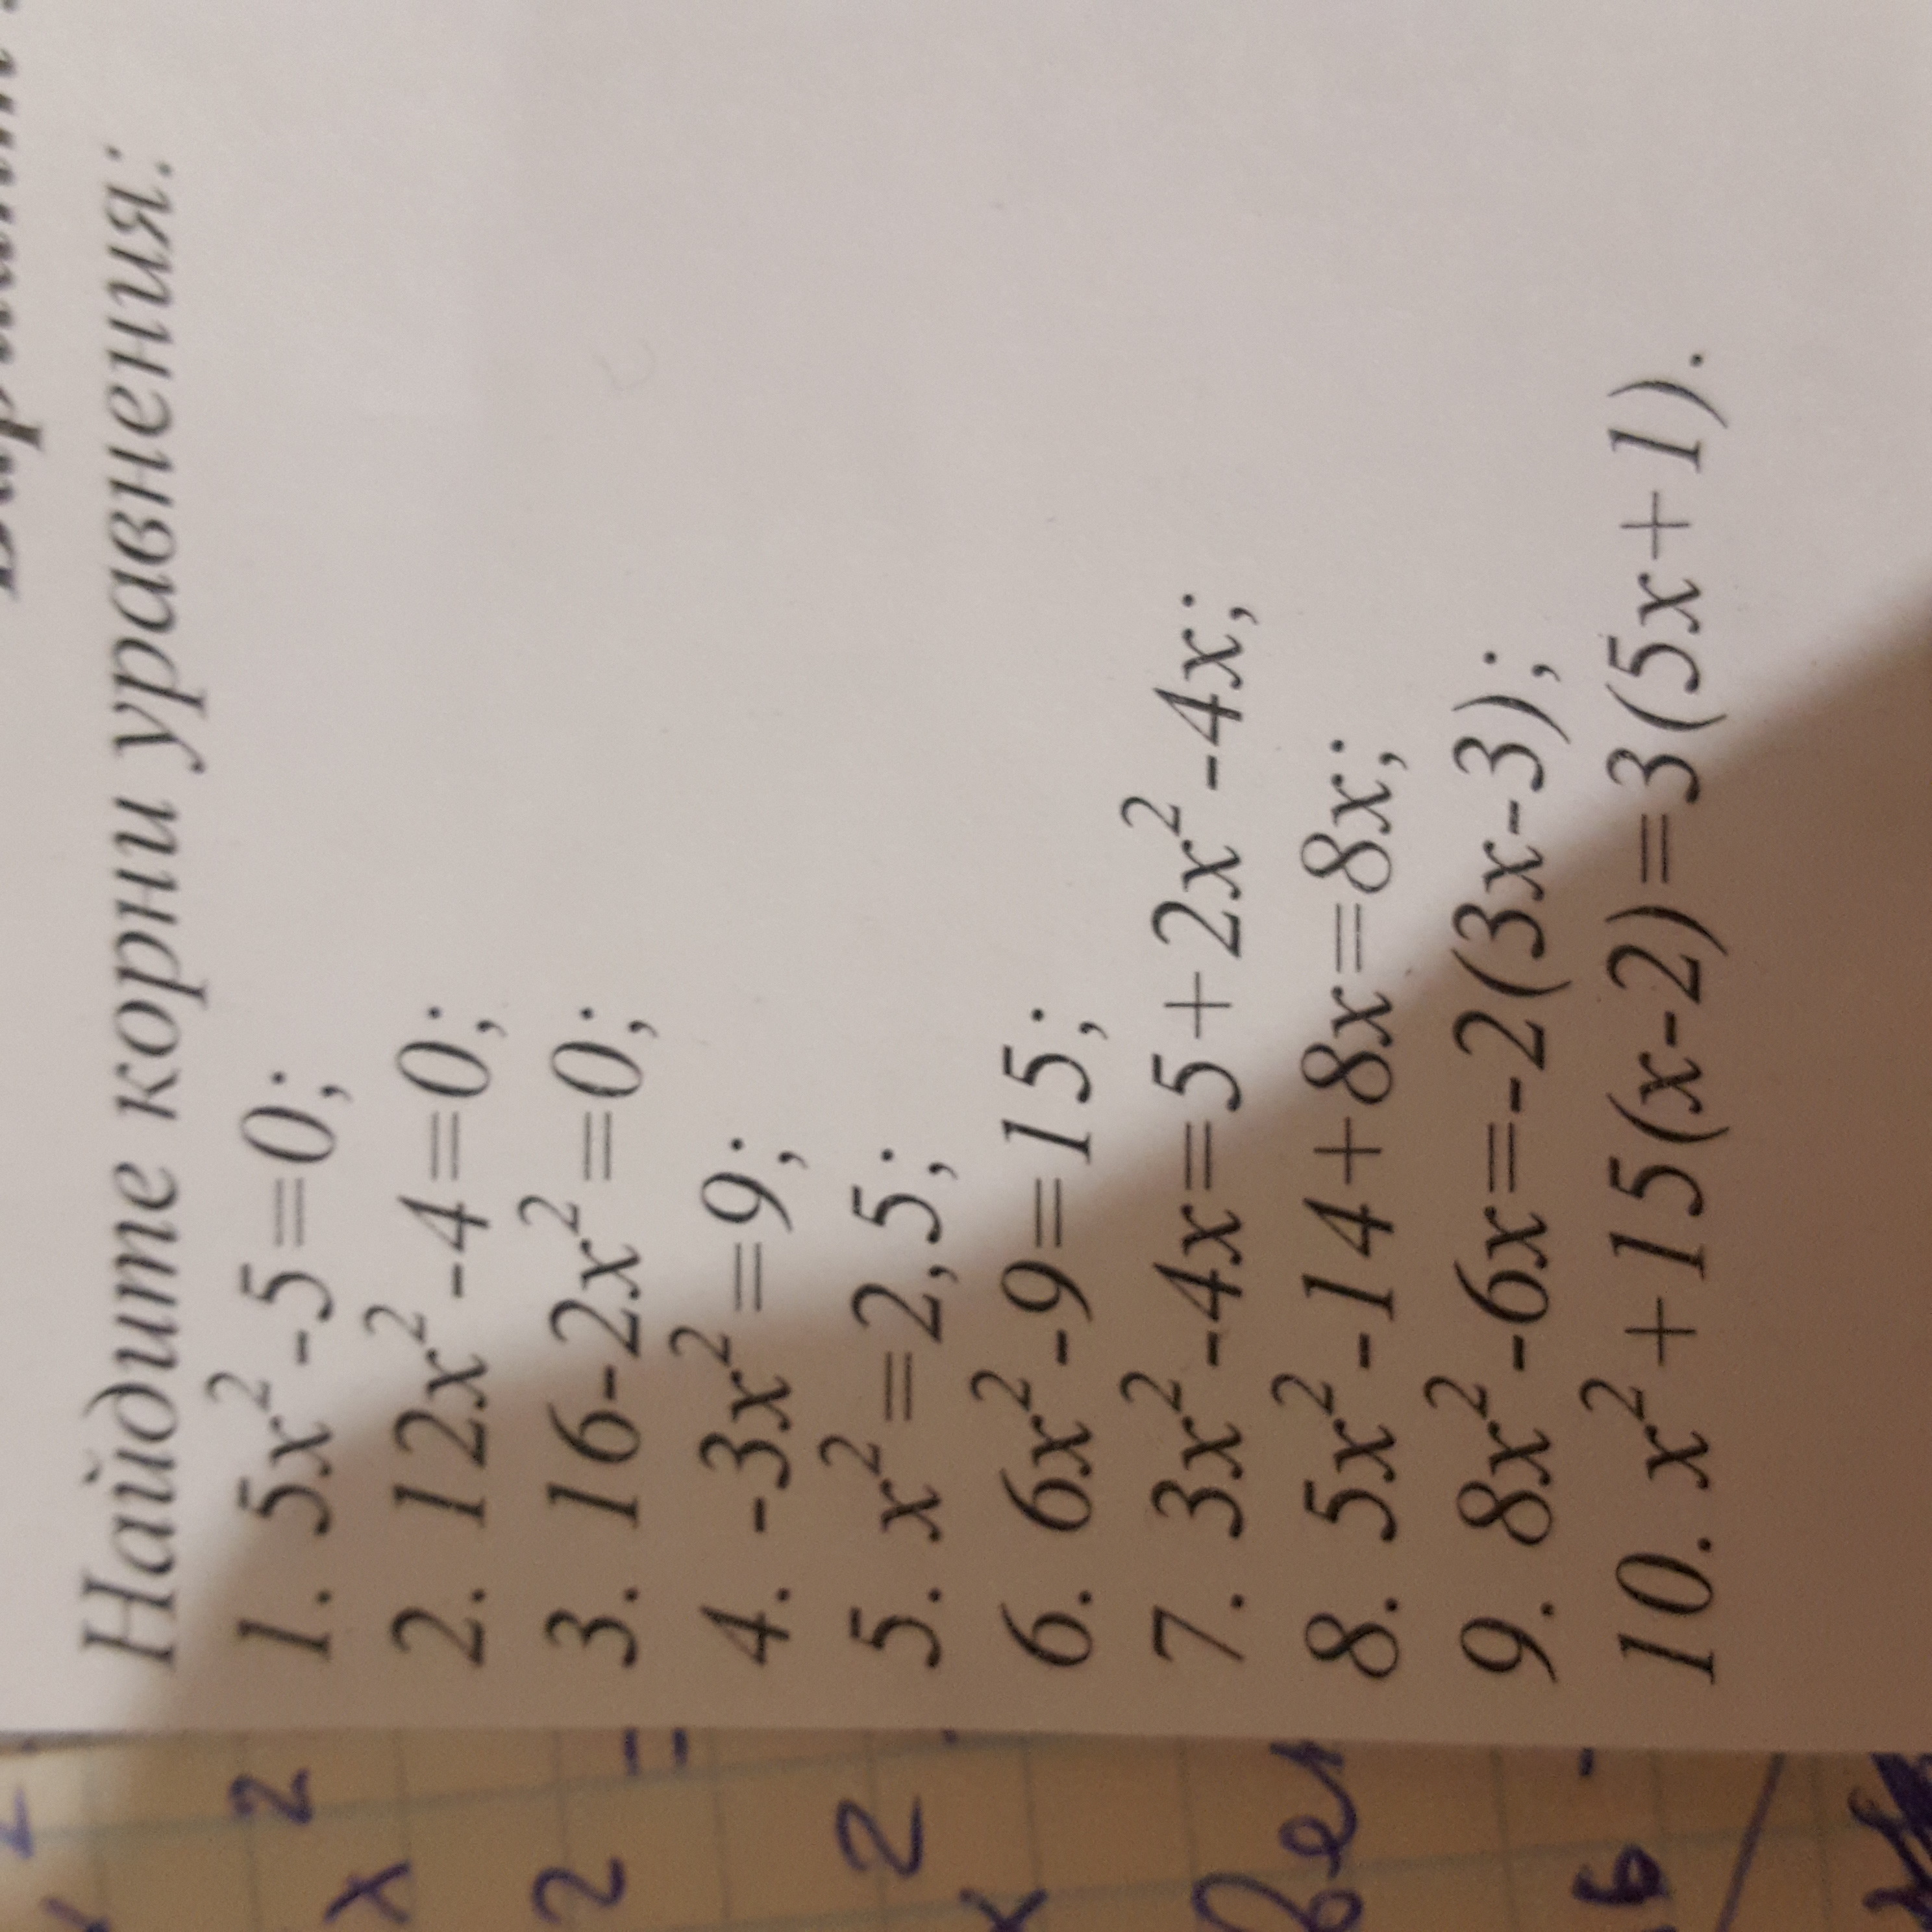 Найдите корни уравнения:
1. 5x²-5=0;
2. 12x²-4=0;
3. 16-2x²=0;
4. -3x²=9;
5. x²=2,5;
6. 6x²-9=15;
7. 3x²-4x=5+2x²-4x;
8. 5x²-14+8x=8x;
9. 8x²-6x=-2(3x-3);
10. x²+15(x-2)=3(5x+1).